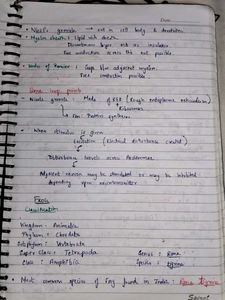 Date
• Nissl's granule → not in cell body & dendrites
• Myelin sheath : Lipid rich sheath
Discontinuous layer act as insulator
Ion conduction across this not possible
• Nodes of Ranvier : Gaps b/w adjacent myelin.
Free conduction possible
Some imp points
- Nissl's granule : Made of RER (Rough endoplasmic reticulum)
+ Ribosomes
→ Fxn : Protein synthesis
- When stimulus is given
Excitation (Electrical disturbance created)
Disturbance travels across
Adjacent neuron may be stimulated or may be inhibited
depending upon neurotransmitter
Frog
Classification
Kingdom : Animalia
Phylum : Chordata
Subphylum : Vertebrata
Super class : Tetrapoda
Class : Amphibia
Genus : Rana
Species : tigrina
• Most common species of frog found in India : Rana tigrina